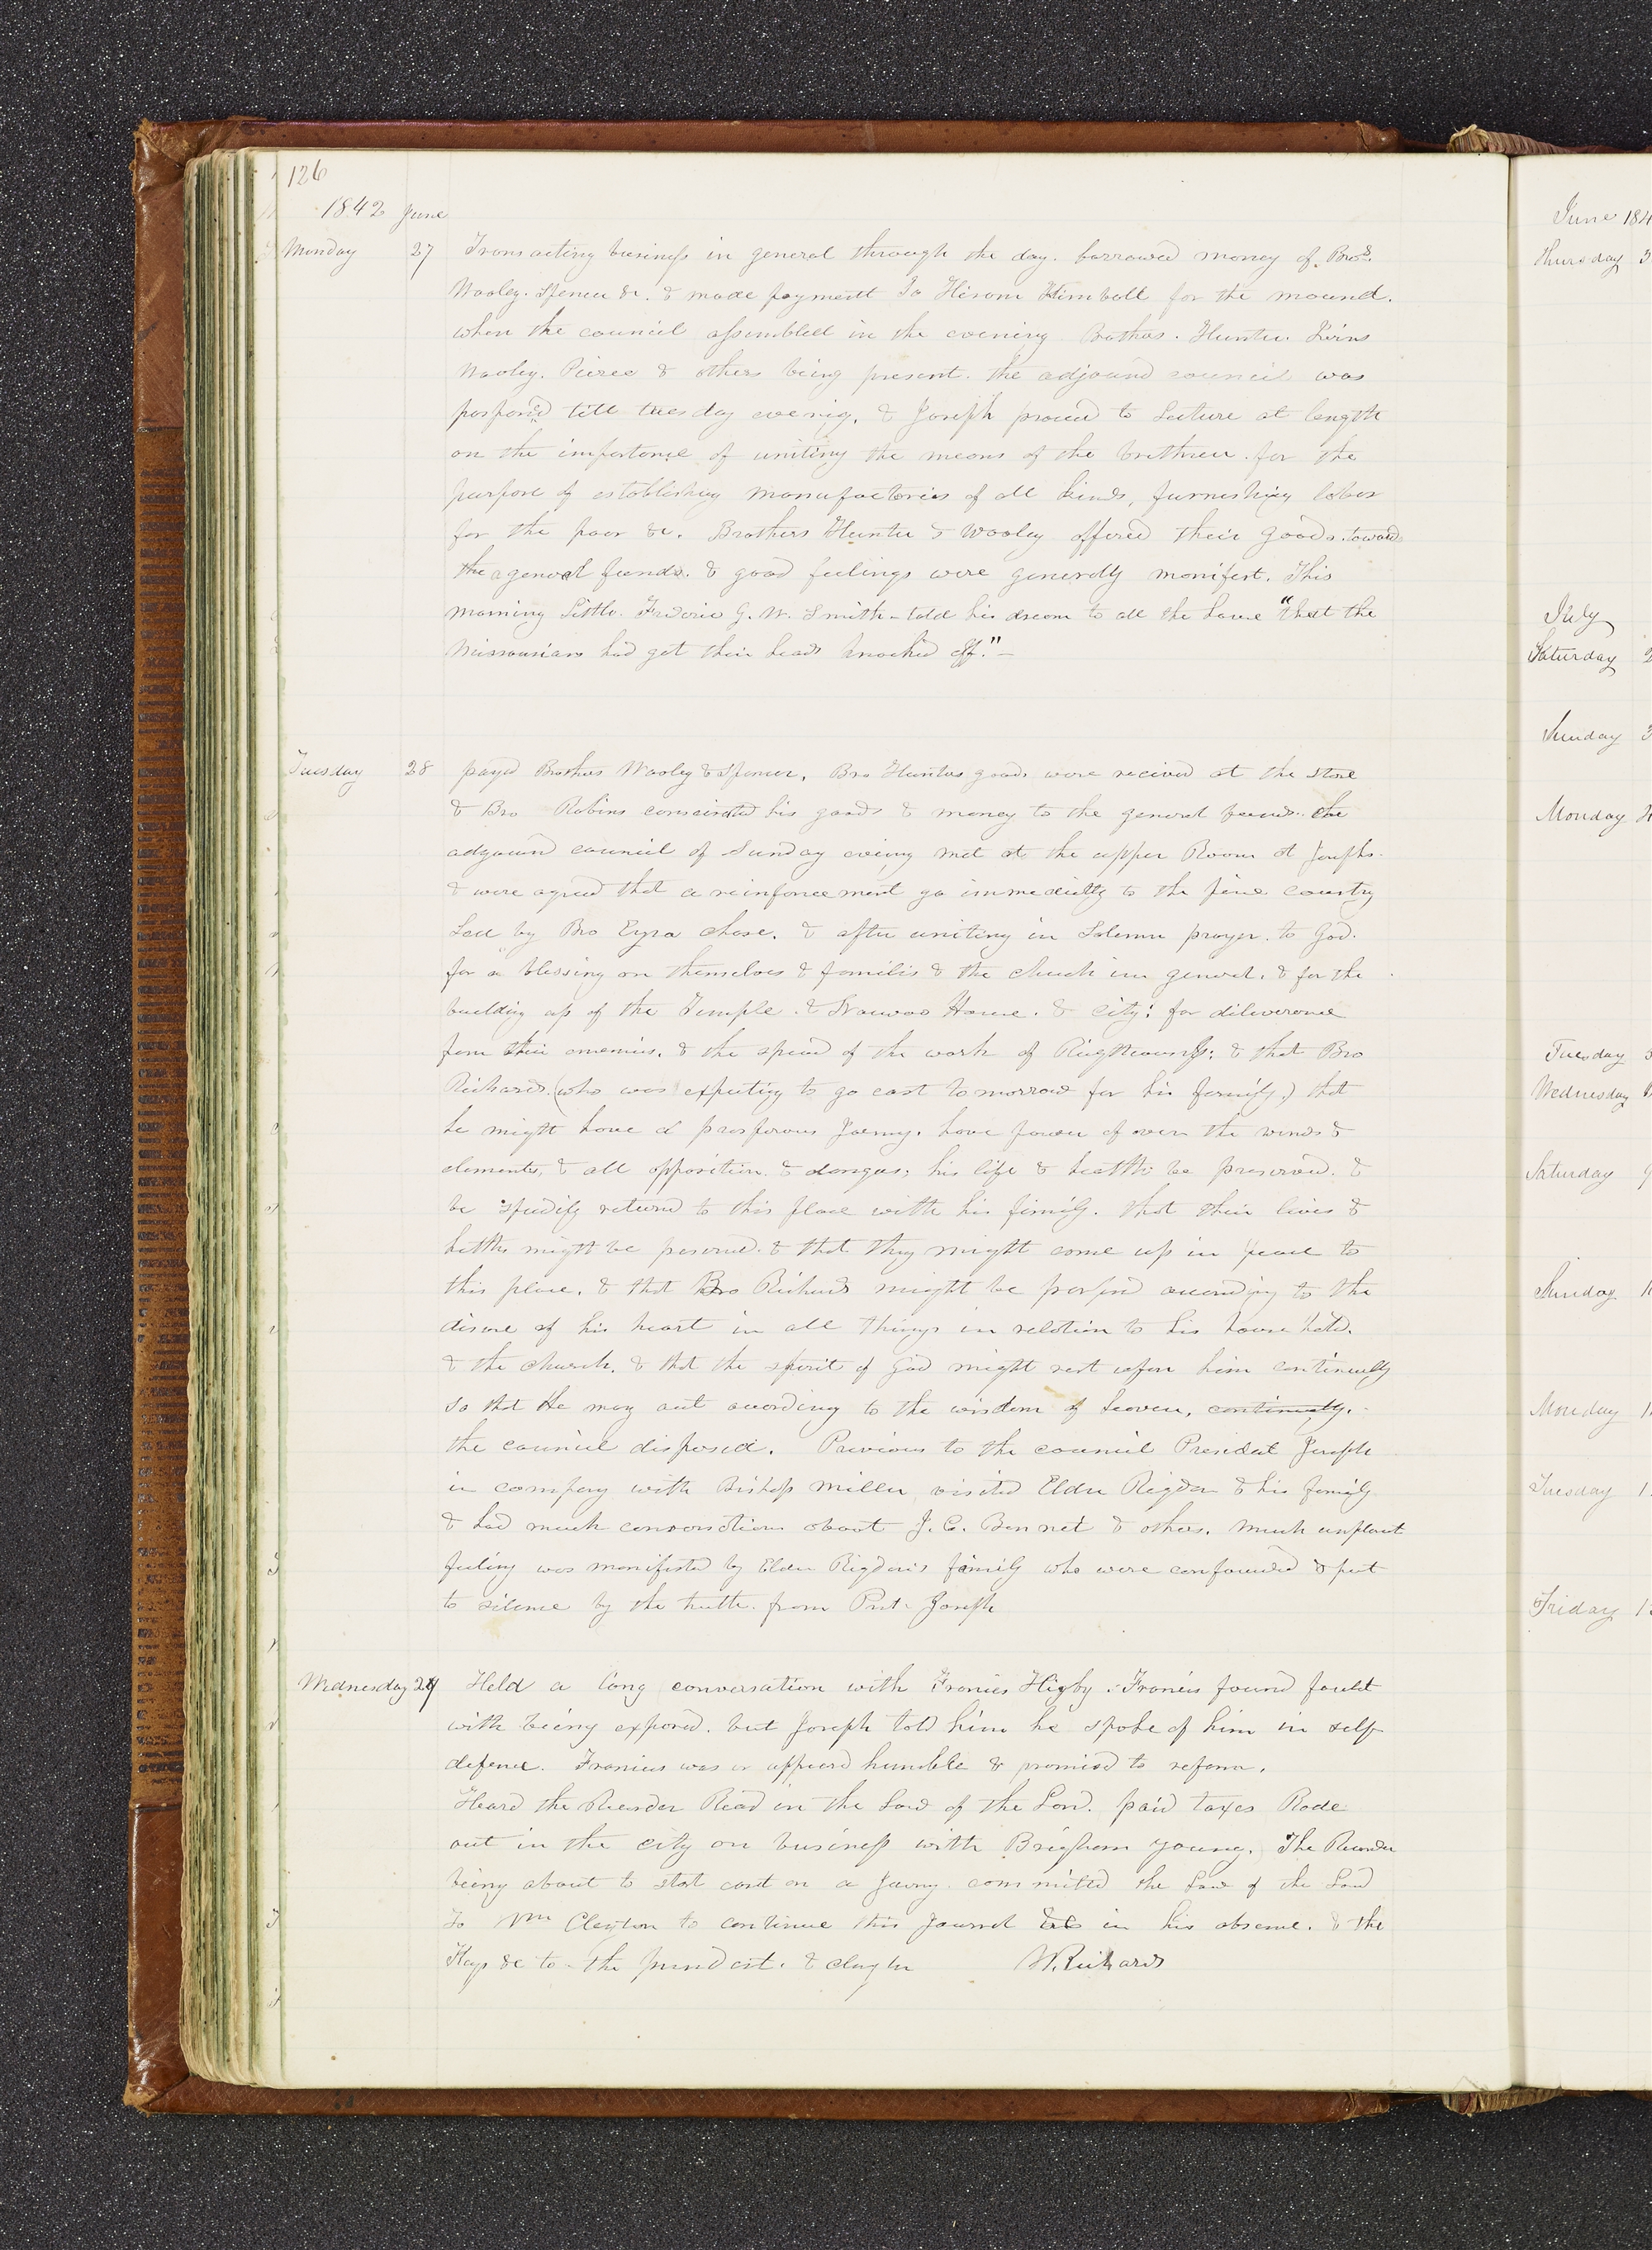 126
1842 June
Monday 27 Transacting business in general through the day. borrowed money of. Bros.
Wooley. Spencer &c. & made payment To Hirom Kimball for the mound.
when the council assembled in the evening Brothers. Hunter. Ivins
Wooley. Pierce & others being present. the adjound council was
posponed till tuesday evenig. & Joseph proceed to Lecture at length
on the importance of uniting the means of the brethren. for the
purpose of establishing manufactories of all kinds, furnishing labor
for the poor &c. Brothers Hunter & Wooley offered their goods. towards
the general funds. & good feelings were generally manifest. This
morning Little. Frederic G. W. Smith told his dream to all the house "that the
Missourians had got their heads knocked off."—
Tuesday 28 payed Brothers Wooley & Spencer. Bro Hunters goods were recived at the store
& Bro Robins consecrated his goods & money to the general funds. the
adjourned council of Sunday eveing met at the upper Room at Josephs.
& were agreed that a reinforcement go immediatly to the pine country
Led by Bro Ezra chase. & after uniting in Solemn prayer. to God.
for a blessing on themselves & familis & the church in general. & for the
building up of the Temple. & Nauvoo House. & city: for deliverance
from their enemies. & the spread of the work of Righteousness: & that Bro
Richards. (who was expecting to go east tomorrow for his family.) that
he might have a prosperous Joerny. have power of over the winds &
elements, & all opposition & dangers; his life & health be preserved. &
be speedily returnd to this place with his fimily. that their lives &
healths might be preserved. & that they might come up in peace to
this place. & that Bro Richards might be prospered according to the
disire of his heart in all things in relation to his house hold.
& the church. & that the spirit of God might rest upon him continually
so that He may act according to the wisdom of heaven. continually.
the council dispersed. Previous to the council Presidet Joseph
in company with Bishop Miller visited Elder Rigdon & his family
& had much conversation about J. C. Bennet & others. much unplasat
feeling was manifested by Elder Rigdon's family who were confounded & put
to silence by the truth. from Prest. Joseph
Wednesday 29 Held a long conversation with Francies Higby. Francis found fault
with being exposed. but Joseph told him he spoke of him in self
defence. Francies was or appeard humble & promisd to reform.
Heard the Recorder Read in the Law of the Lord. paid taxes Rode
out in the city on business with Brigham Young. The Recorder
being about to start east on a Jouny. committed the Law of the Lord
To Wm Clayton to continue this Journal &c in his absence. & the
Keys &c to the presidest. & clayton W. Richards
June 184
Thursday 3
July
Saturday 2
Sunday 3
Monday 4
Tuesday 5
Wednesday
Saturday 9
Sunday 1
Monday 1
Tuesday 1
Friday 1